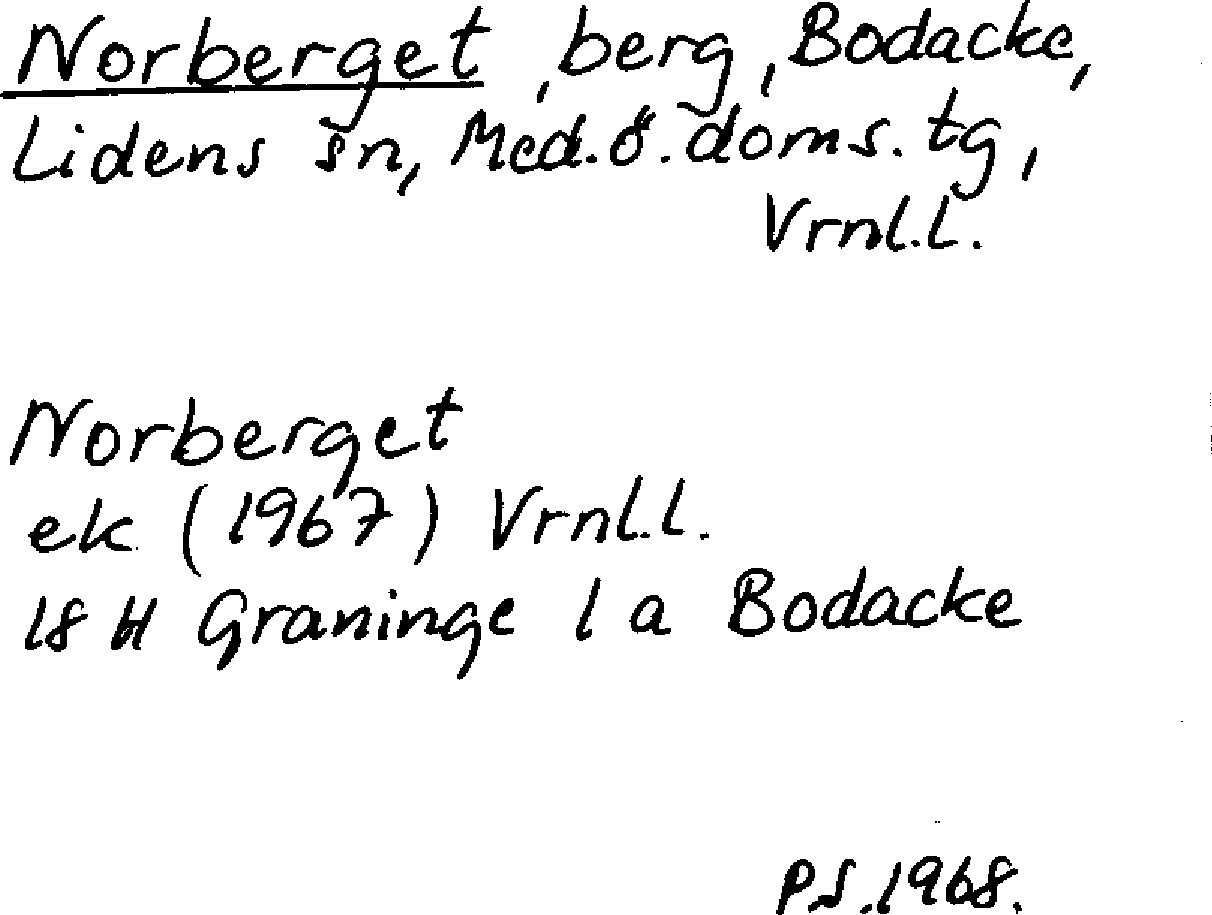 Norberget, berg, Bodacke,
Lidens sn, Med.ö.doms.tg,
Vrnl.l.
Norberget
ek (1967) Vrnl.l.
18 H Graninge 1 a Bodacke
P.S.1968.